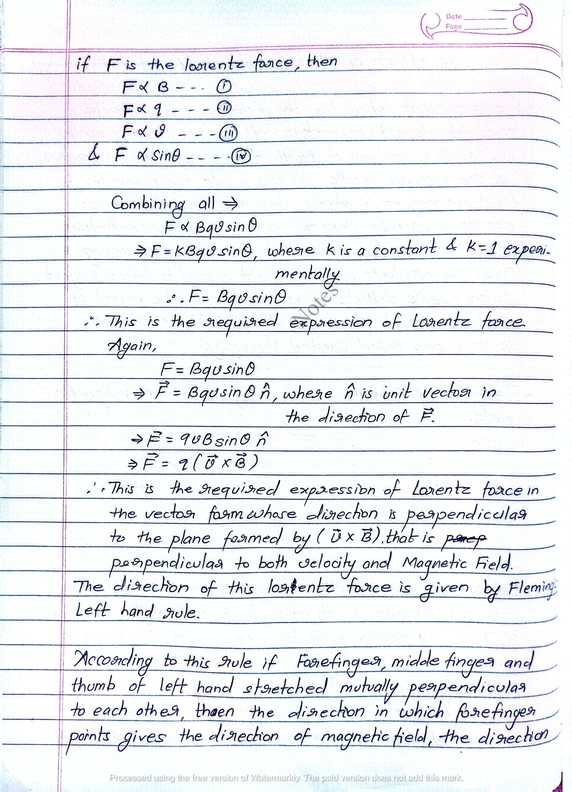 Date
Page
if F is the lorentz force, then
F ∝ B --- (i)
F ∝ q --- (ii)
F ∝ v --- (iii)
& F ∝ sinθ ---- (iv)
Combining all ⇒
F ∝ Bqvsinθ
⇒ F = KBqvsinθ, where k is a constant & K=1 experi-
mentally
∴ F = Bqvsinθ
Notes
∴ This is the required expression of Lorentz force.
Again,
F = Bqvsinθ
⇒ F⃗ = Bqvsinθ n̂, where n̂ is unit vector in
the direction of F⃗.
⇒ F⃗ = qvBsinθ n̂
⇒ F⃗ = q(v⃗ × B⃗)
∴ This is the required expression of Lorentz force in
the vector form whose direction is perpendicular
to the plane formed by (v⃗ × B⃗). that is
perpendicular to both velocity and Magnetic Field.
The direction of this lorentz force is given by Fleming
Left hand rule.
According to this rule if Forefinger, middle finger and
thumb of left hand stretched mutually perpendicular
to each other, then the direction in which forefinger
points gives the direction of magnetic field, the direction
Processed using the free version of Watermarkly. The paid version does not add this mark.